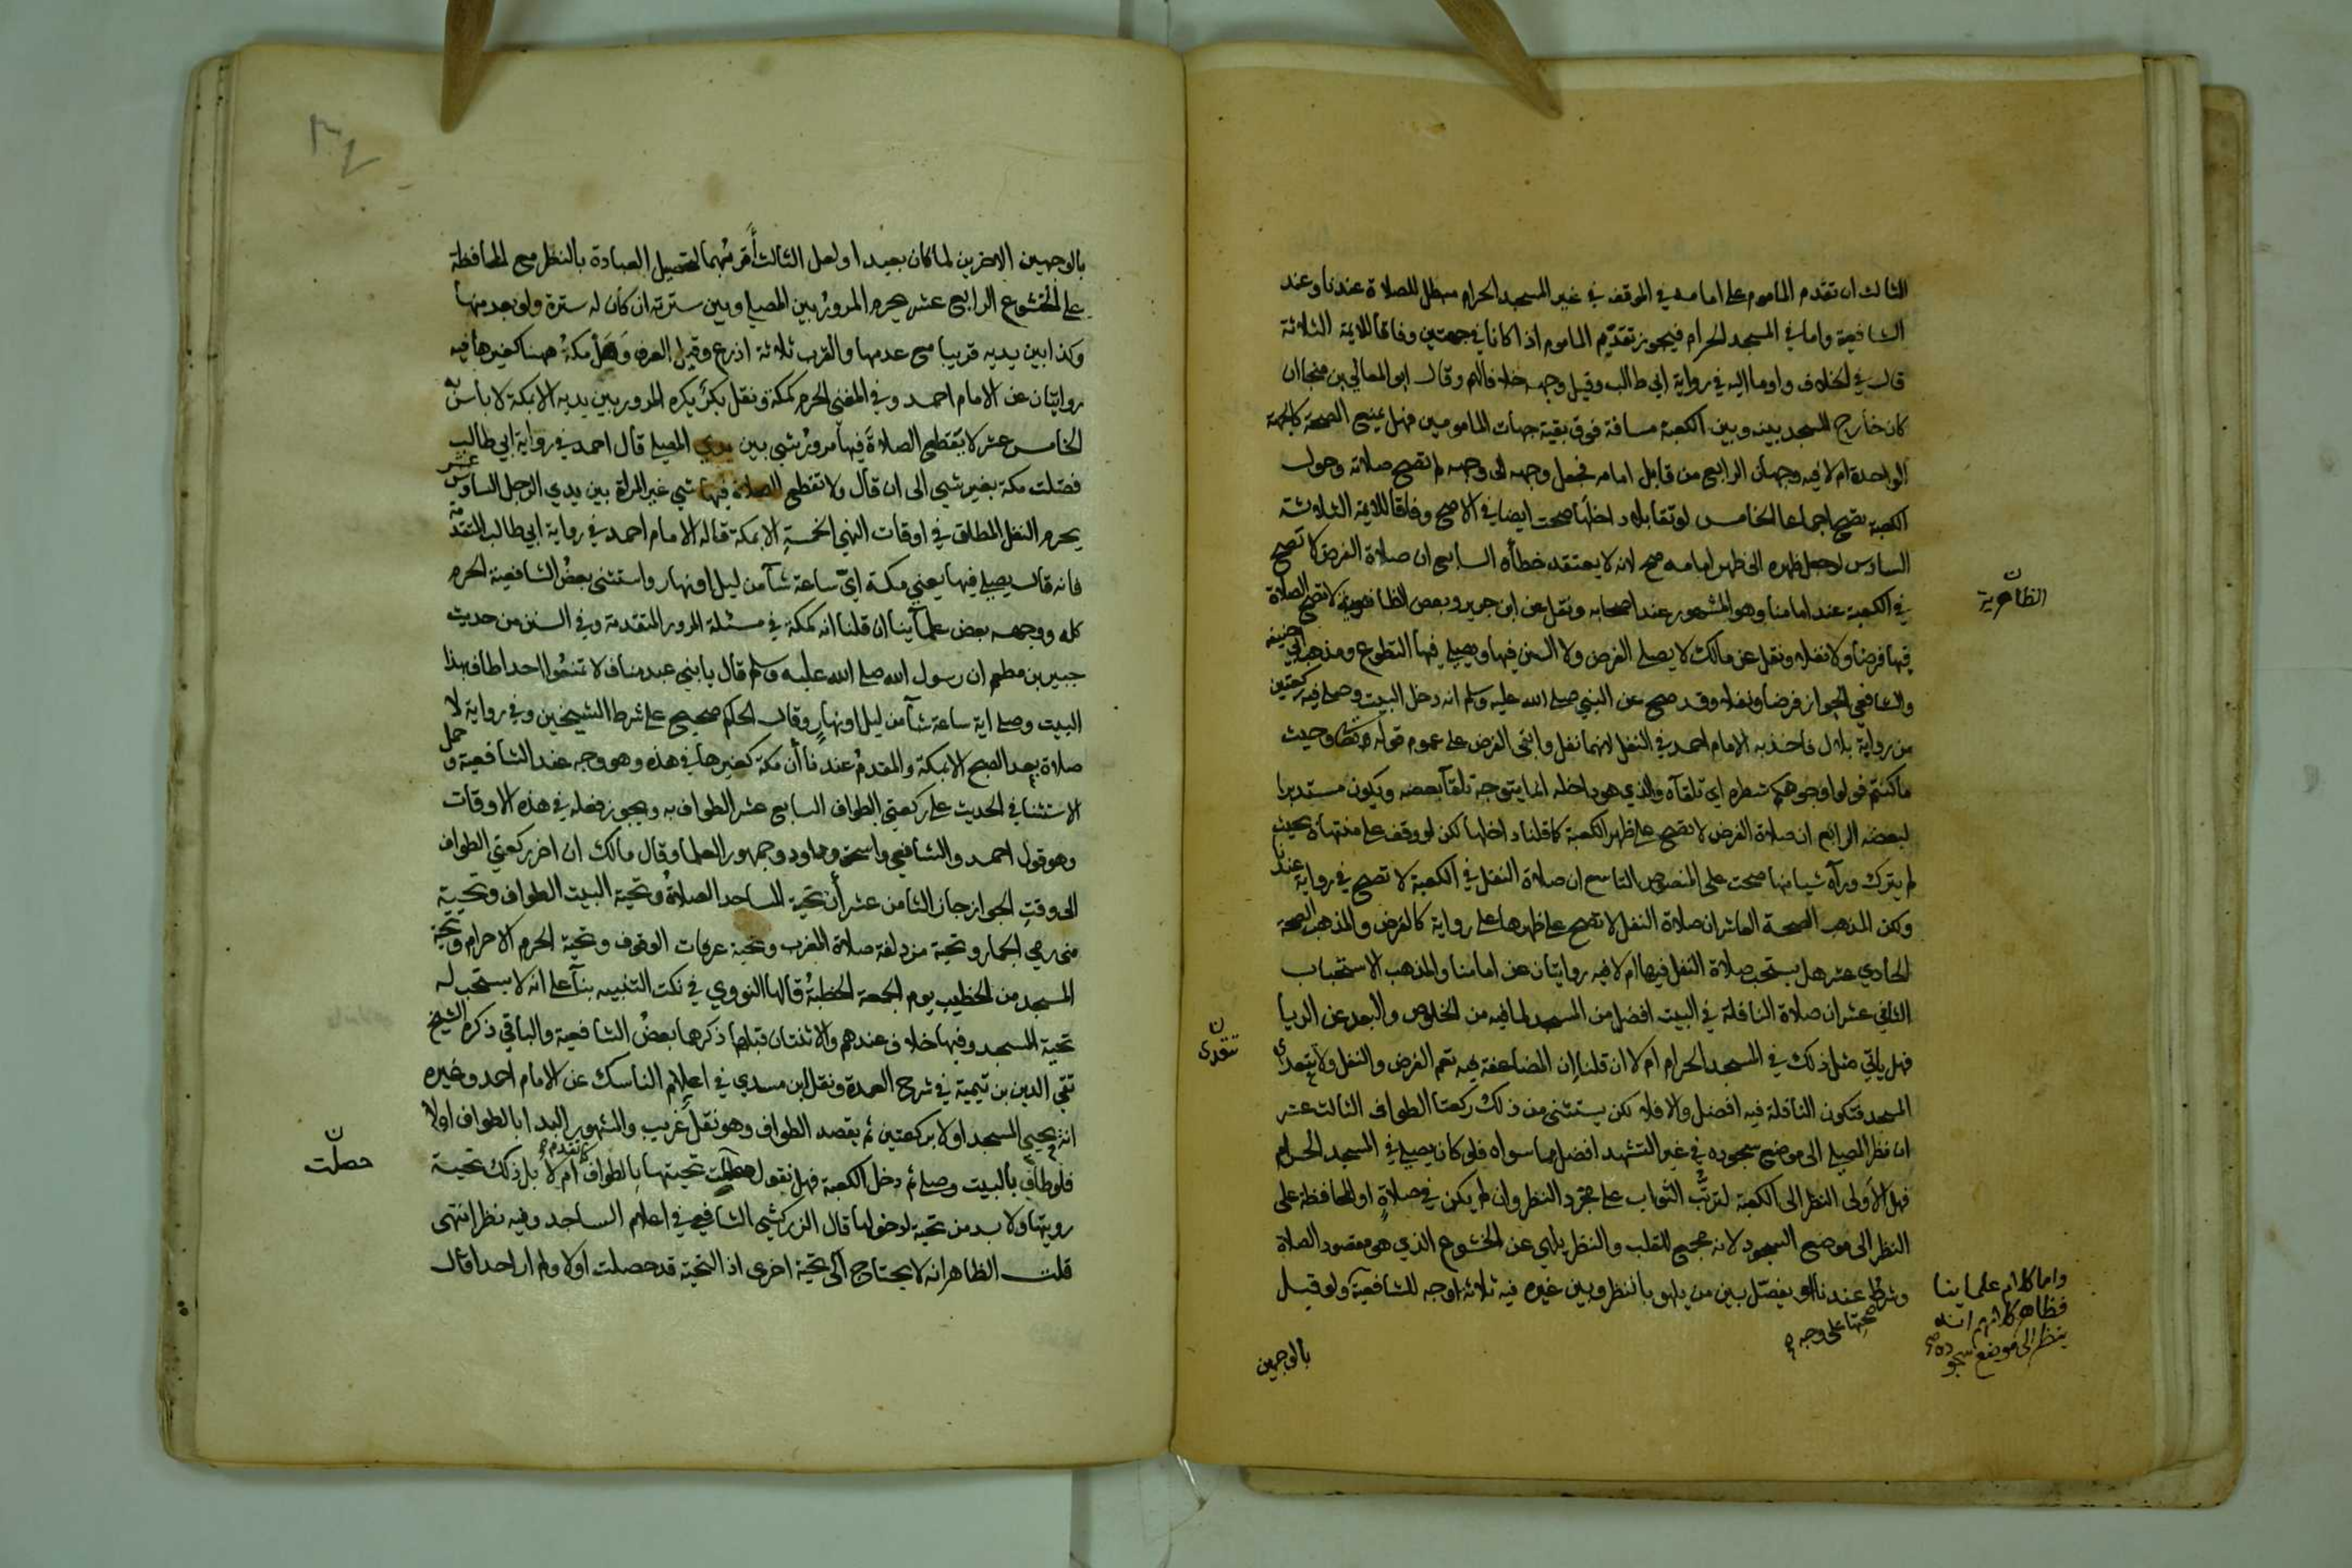 الثالث ان تقدم الماموم على امامه في الموقف في غير المسجد الحرام مبطل للصلاة عندنا وعند
الشافعية واما في المسجد الحرام فيجوز تقدّم الماموم اذا كانا في جهتين وفاقا للايمة الثلاثة
قال في الخلاف واوما اليه في رواية ابي طالب وقيل وجهه خلافا لهم وقال ابو المعالي بن منجا ان
كان خارج المسجد بينه وبين الكعبة مسافة فوق بقية جهات المامومين فهل يمنع الصحة كالجهة
الواحدة ام لا فيه وجهان الرابع من قابل امامه فجعل وجهه الى وجهه لم تصح صلاته وحول
الكعبة تصح اجماعا الخامس لو تقابلا داخلها صحت ايضا في الاصح وفاقا للايمة الثلاثة
السادس لو جعل ظهره الى ظهر امامه صح لانه لا يعتقد خطأه السابع ان صلاة الفرض لا تصح
في الكعبة عند امامنا وهو المشهور عند اصحابه ونقل عن ابن جرير وبعض الظاهرية لا تصح الصلاة
الظاهرية
فيها فرضا ولا نفلا ونقل عن مالك لا يصلي الفرض ولا السنن فيها ويصلي فيها التطوع ومذهب ابي حنيفة
والشافعي الجواز فرضا ونفلا وقد صح عن النبي صلى الله عليه وسلم انه دخل البيت وصلى فيه ركعتين
من رواية بلال فاخذ به الامام احمد في النفل لانهما نفل وابقى الفرض على عموم قوله وحيث
ما كنتم فولوا وجوهكم شطره اي تلقآه والذي هو داخله انما يتوجه تلقآ بعضه ويكون مستدبرا
لبعضه ان صلاة الفرض لا تصح على ظهر الكعبة كما قلنا داخلها لكن لو وقف على منتهاه بحيث
لم يترك ورآه شيا منها صحت على المنصوص التاسع ان صلاة النفل في الكعبة لا تصح في رواية عندنا
ولكن المذهب الصحة العاشر ان صلاة النفل لا تصح على ظهرها على رواية كالفرض والمذهب الصحة
الحادي عشر هل يستحب صلاة النفل فيها ام لا فيه روايتان عن امامنا والمذهب الاستحباب
الثاني عشر ان صلاة النافلة في البيت افضل من المسجد لما فيه من الخلوص والبعد عن الريا
فهل ياتي مثل ذلك في المسجد الحرام ام لا ان قلنا ان المضاعفة به تعم الفرض والنفل ولا يتعدى
تتعدى
المسجد فتكون النافلة فيه افضل والا فلا لكن يستثنى من ذلك ركعتا الطواف الثالث عشر
ان نظر المصلي الى موضع سجوده في غير التشهد افضل مما سواه فلو كان يصلي في المسجد الحرام
فهل الأولى النظر الى الكعبة لترتّب الثواب على مجرد النظر وان لم يكن في صلاةٍ او المحافظة على
النظر الى موضع السجود لانه مجمع للقلب والنظر يلهي عن الخشوع الذي هو مقصود الصلاة
وشرطٌ عندنا او يفصّل بين من يلهو بالنظر وبين غيره فيه ثلاثة اوجه للشافعية ولو قيل
صحتها على وجه
واما كلام علماينا
فظاهر كلامهم انه
ينظر الى موضع سجوده
بالوجهين
بالوجهين الاخرين لما كان بعيدا ولعل الثالث أقربهما لتحصيل العبادة بالنظر مع المحافظة
على الخشوع الرابع عشر يحرم المرورُ بين المصلي وبين سترته ان كان له سترة ولو بعد منها
وكذا بين يديه قريبا مع عدمها والقرب ثلاثة اذرع وقيل العرف وَهَلْ مكةُ هنا كغيرها فيه
روايتان عن الامام احمد وفي المغني الحرم كمكة ونقل بكر يكره المرور بين يديه الا بمكة لا باس به
الخامس عشر لا يقطع الصلاةَ فيها مرورُ شي بين يدي المصلي قال احمد في رواية ابي طالب
فضلت مكة بغير شي الى ان قال ولا تقطع الصلاة فيها شي غير المراة بين يدي الرجل السادس عشر
يحرم النفل المطلق في اوقات النهي الخمسةِ الا بمكة قاله الامام احمد في رواية ابي طالب المتقدمة
فانه قال يصلي فيها يعني مكة ايّ ساعة شآ من ليل او نهار واستثنى بعضُ الشافعية الحرم
كله ووجهه بعض علمآينا ان قلنا انه كمكة في مسئلة المرور المتقدمة وفي السنن من حديث
جبير بن مطعم ان رسول الله صلى الله عليه وسلم قال يا بني عبد مناف لا تمنعُوا احدا طاف بهذا
البيت وصلى اية ساعة شآ من ليل او نهارٍ وقال الحاكم صحيح على شرط الشيخين وفي رواية لا
صلاة بعد الصبح الا بمكة والمقدمُ عندنا أن مكة كغيرها في هذه وهو وجه عند الشافعية وحمل
الاستثنا في الحديث على ركعتي الطواف السابع عشر الطواف به ويجوز فعله في هذه الاوقات
وهو قول احمد والشافعي واسحق وداود وجمهور العلما وقال مالك ان اخر ركعتي الطواف
الى وقتِ الجواز جاز الثامن عشر أن تحية المساجد الصلاةُ وتحية البيت الطواف وتحية
منى رمي الجمار وتحية مزدلفة صلاة المغرب وتحية عرفات الوقوف وتحية الحرم الاحرام وتحية
المسجد من الخطيب يوم الجمعة الخطبةُ قالها النووي في نكت التنبيه بنآ على انه لا يستحب له
تحية المسجد وفيها خلاف عندهم والاثنتان قبلها ذكرها بعضُ الشافعية والباقي ذكره الشيخ
تقي الدين بن تيمية في شرح العمدة ونقل ابن مسدي في اعلام الناسك عن الامام احمد وغيره
انه يحيي المسجد اولا بركعتين ثم يقصد الطواف وهو نقلٌ غريب والمشهور البدا بالطواف اولا
كما تقدم
فلو طاف بالبيت وصلى ثم دخل الكعبة فهل نقول حصلت تحيتها بالطواف ام لا بل ذلك تحية
حصلت
رويتها ولا بد من تحية لدخولها قال الزركشي الشافعي في اعلام الساجد وفيه نظر انتهى
قلت الظاهر انه لا يحتاج الى تحية اخرى اذ التحية قد حصلت اولا ولم ار احدا قال